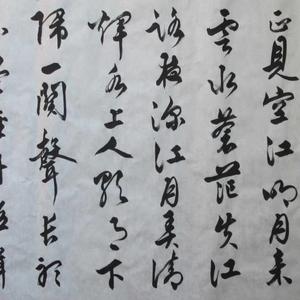 正見空江明月来
雲水蒼茫失江
路夜深江月弄清
輝水上人歌月下
歸一闋聲長聽